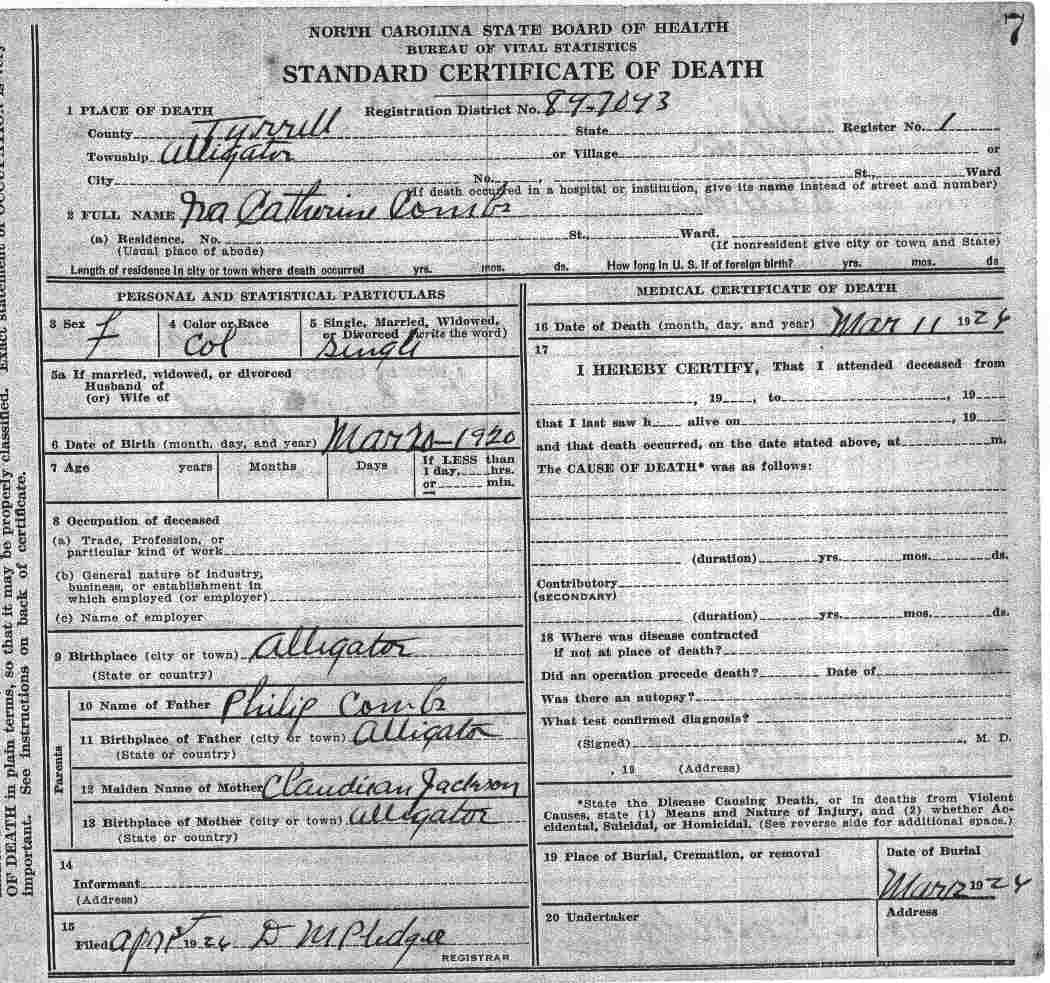 7
NORTH CAROLINA STATE BOARD OF HEALTH
BUREAU OF VITAL STATISTICS
STANDARD CERTIFICATE OF DEATH
1 PLACE OF DEATH Registration District No. 89-7043
County Tyrrell State Register No. 1
Township Alligator or Village or
City No. , St., Ward
(If death occurred in a hospital or institution, give its name instead of street and number)
2 FULL NAME Catherine Combs
(a) Residence, No. St., Ward,
(Usual place of abode) (If nonresident give city or town and State)
Length of residence in city or town where death occurred yrs. mos. ds. How long in U. S. if of foreign birth? yrs. mos. ds
PERSONAL AND STATISTICAL PARTICULARS
3 Sex f 4 Color or Race Col 5 Single, Married, Widowed, or Divorced (write the word) Single
5a If married, widowed, or divorced
Husband of
(or) Wife of
6 Date of Birth (month, day, and year) Mar 20-1920
7 Age years Months Days If LESS than
1 day, hrs.
or min.
8 Occupation of deceased
(a) Trade, Profession, or
particular kind of work
(b) General nature of industry,
business, or establishment in
which employed (or employer)
(c) Name of employer
9 Birthplace (city or town) Alligator
(State or country)
Parents
10 Name of Father Philip Combs
11 Birthplace of Father (city or town) Alligator
(State or country)
12 Maiden Name of Mother Jackson
13 Birthplace of Mother (city or town) Alligator
(State or country)
14
Informant
(Address)
15
Filed Apr 1924 D M Pledger
REGISTRAR
MEDICAL CERTIFICATE OF DEATH
16 Date of Death (month, day, and year) Mar 11 1924
17
I HEREBY CERTIFY, That I attended deceased from
, 19 , to , 19
that I last saw h alive on , 19
and that death occurred, on the date stated above, at m.
The CAUSE OF DEATH* was as follows:
(duration) yrs. mos. ds.
Contributory
(SECONDARY)
(duration) yrs. mos. ds.
18 Where was disease contracted
if not at place of death?
Did an operation precede death? Date of
Was there an autopsy?
What test confirmed diagnosis?
(Signed) , M. D.
, 19 (Address)
*State the Disease Causing Death, or in deaths from Violent
Causes, state (1) Means and Nature of Injury, and (2) whether Ac-
cidental, Suicidal, or Homicidal. (See reverse side for additional space.)
19 Place of Burial, Cremation, or removal Date of Burial
Mar 12 1924
20 Undertaker Address
OF DEATH in plain terms, so that it may be properly classified. Exact statement of OCCUPATION is very
important. See instructions on back of certificate.